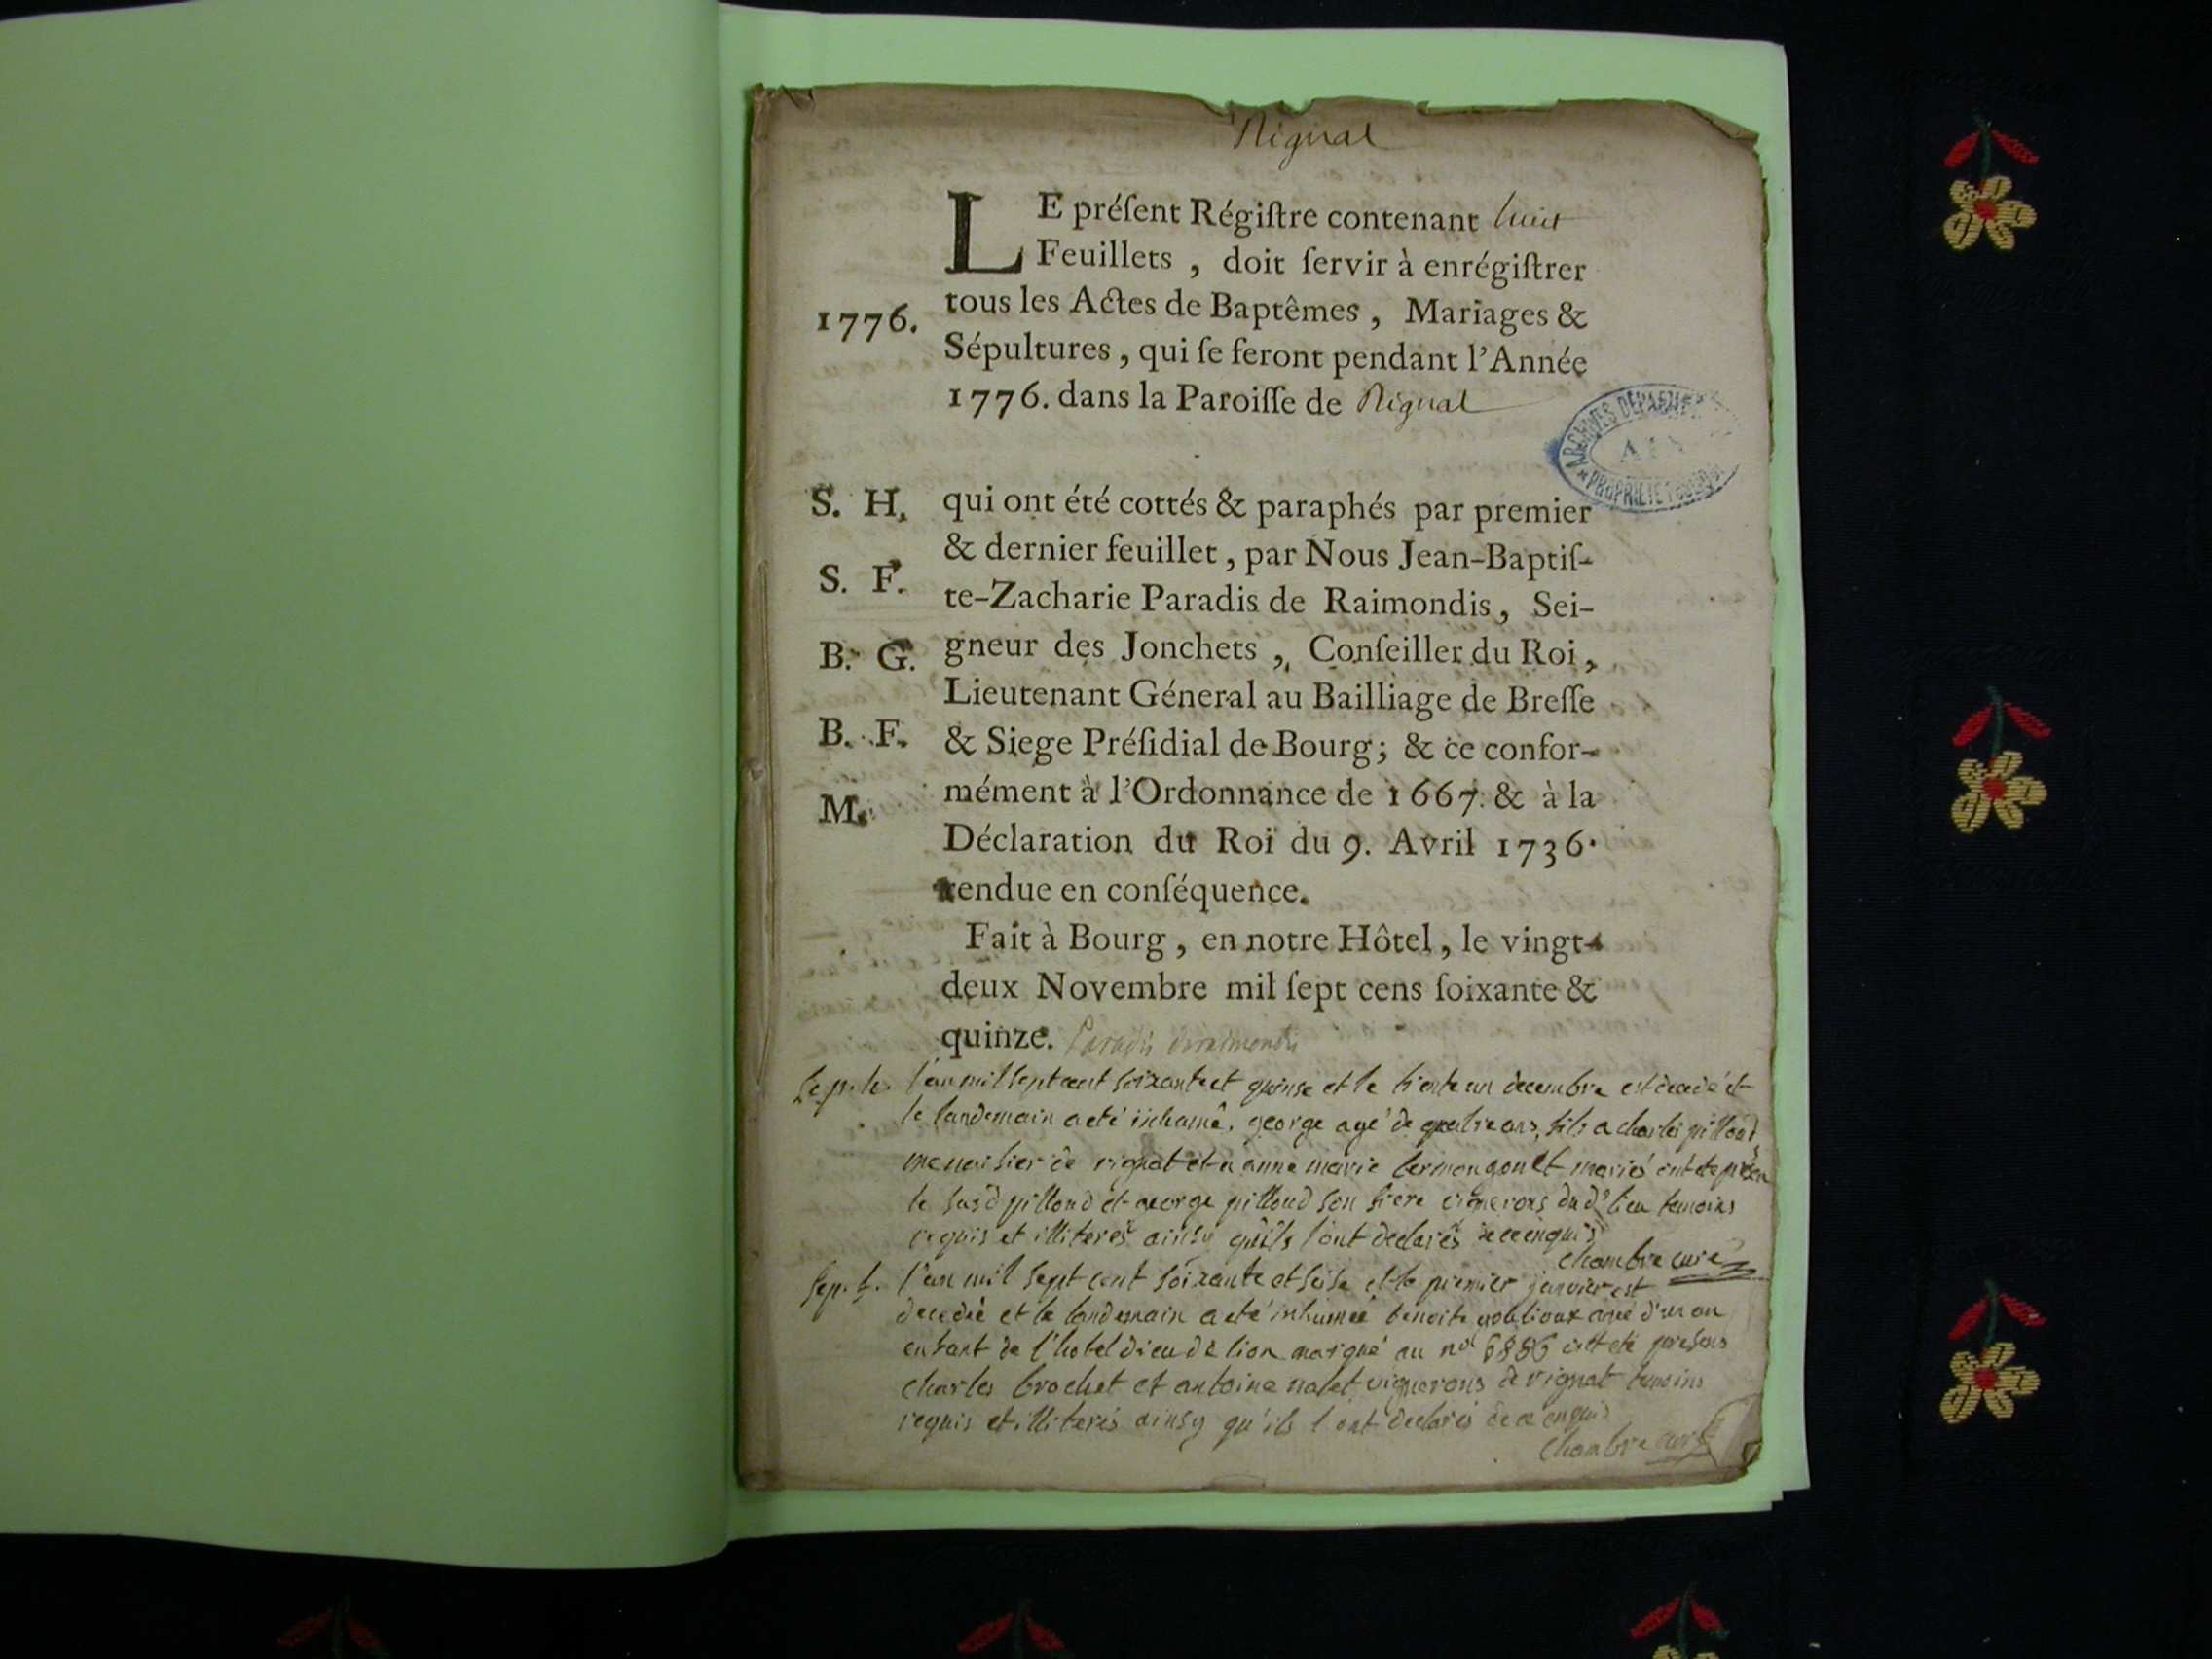 Rignat
LE préſent Régiſtre contenant huit
Feuillets, doit ſervir à enrégiſtrer
1776. tous les Actes de Baptêmes, Mariages &
Sépultures, qui ſe feront pendant l'Année
1776. dans la Paroiſſe de Rignat
ARCHIVES DEPARTEM
AIN
PROPRIETE PUBLIQUE
S. H. qui ont été cottés & paraphés par premier
& dernier feuillet, par Nous Jean-Baptiſ-
S. F. te-Zacharie Paradis de Raimondis, Sei-
B. G. gneur des Jonchets, Conſeiller du Roi,
Lieutenant Géneral au Bailliage de Breſſe
B. F. & Siege Préſidial de Bourg; & ce confor-
M. mément à l'Ordonnance de 1667. & à la
Déclaration du Roi du 9. Avril 1736.
rendue en conſéquence.
Fait à Bourg, en notre Hôtel, le vingt-
deux Novembre mil ſept cens ſoixante &
quinze. Paradis deraimondis
Sep. h. l'an mil sept cent soixante et quinse et le trente un decembre est decedé et
le landemain a eté inhumé, george agé de quatre ans, fils a charles pilloud
menuisier de rignat et a anne marie mariés ont eté
le susd pilloud et george pilloud son frere vignerons dud lieu temoins
requis et illiterés ainsy qu'ils l'ont declarés de ce enquis
chambre curé
Sep. f. l'an mil sept cent soixante et seise et le premier janvier est
decedée et le landemain a eté inhumée benoite agée d'un an
enfant de l'hotel dieu de lion marqué au no 6886 ont eté presens
charles brochet et antoine nalet vignerons de rignat temoins
requis et illiterés ainsy qu'ils l'ont declarés de ce enquis
chambre curé